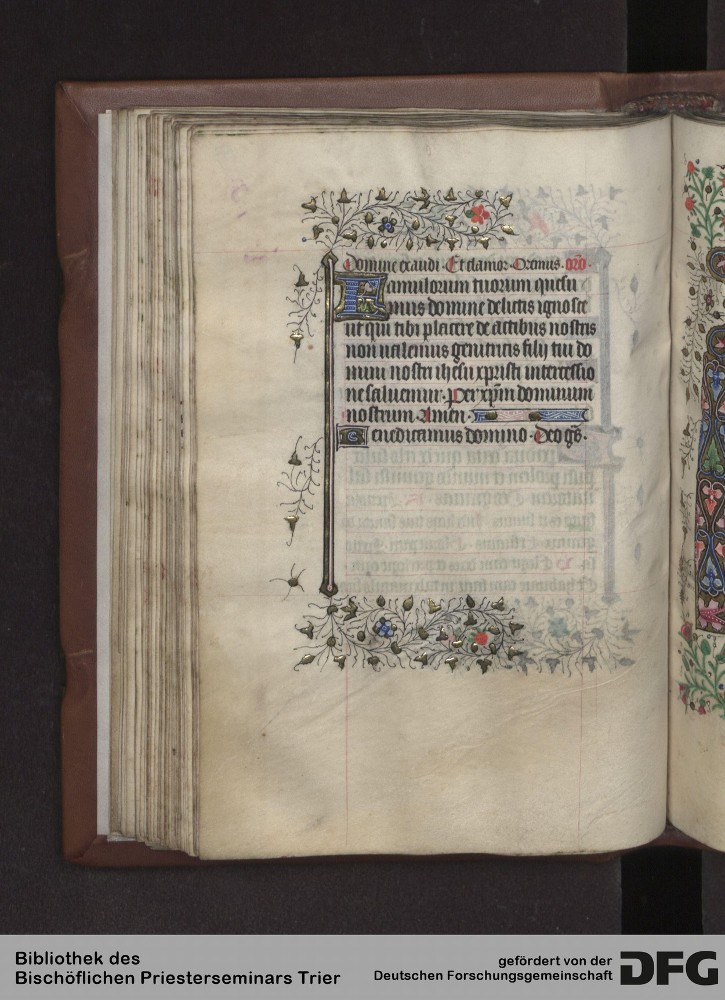 Domine exaudi. Et clamor. Oremus. oro.
Famulorum tuorum quesu
mus domine delictis ignosce
ut qui tibi placere de actibus nostris
non ualemus genitricis filij tui do
mini nostri ihesu xpristi intercessio
ne saluemur. Per xpm dominum
nostrum. Amen.
Benedicamus domino. Deo gs.
Bibliothek des
Bischöflichen Priesterseminars Trier
gefördert von der
Deutschen Forschungsgemeinschaft
DFG